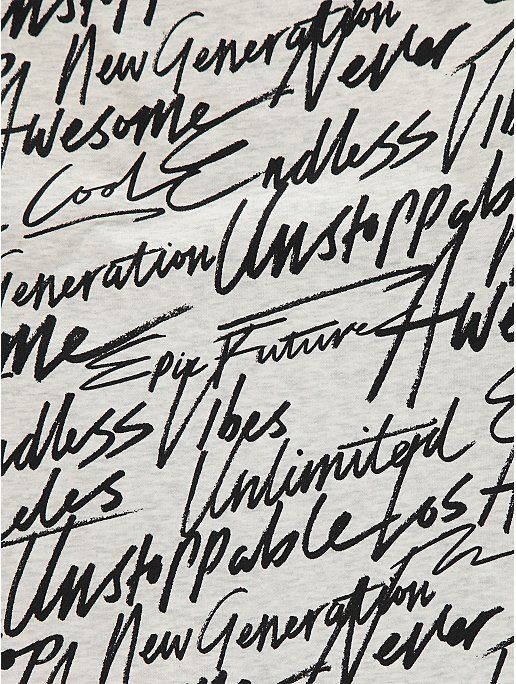 Unstopp
New Generation
Never
Awesome
Cool Endless Vibes
Generation Unstoppable
Epic Future Awe
ome
ndless Vibes
Unlimited
eles
Unstoppable Los A
New Generation
Never